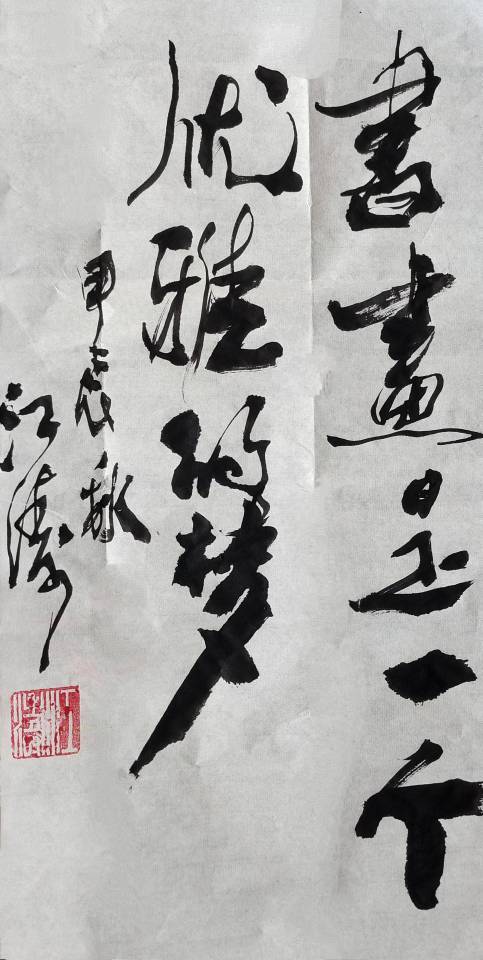 書畫是一个
优雅的梦
甲辰秋
江涛
江涛